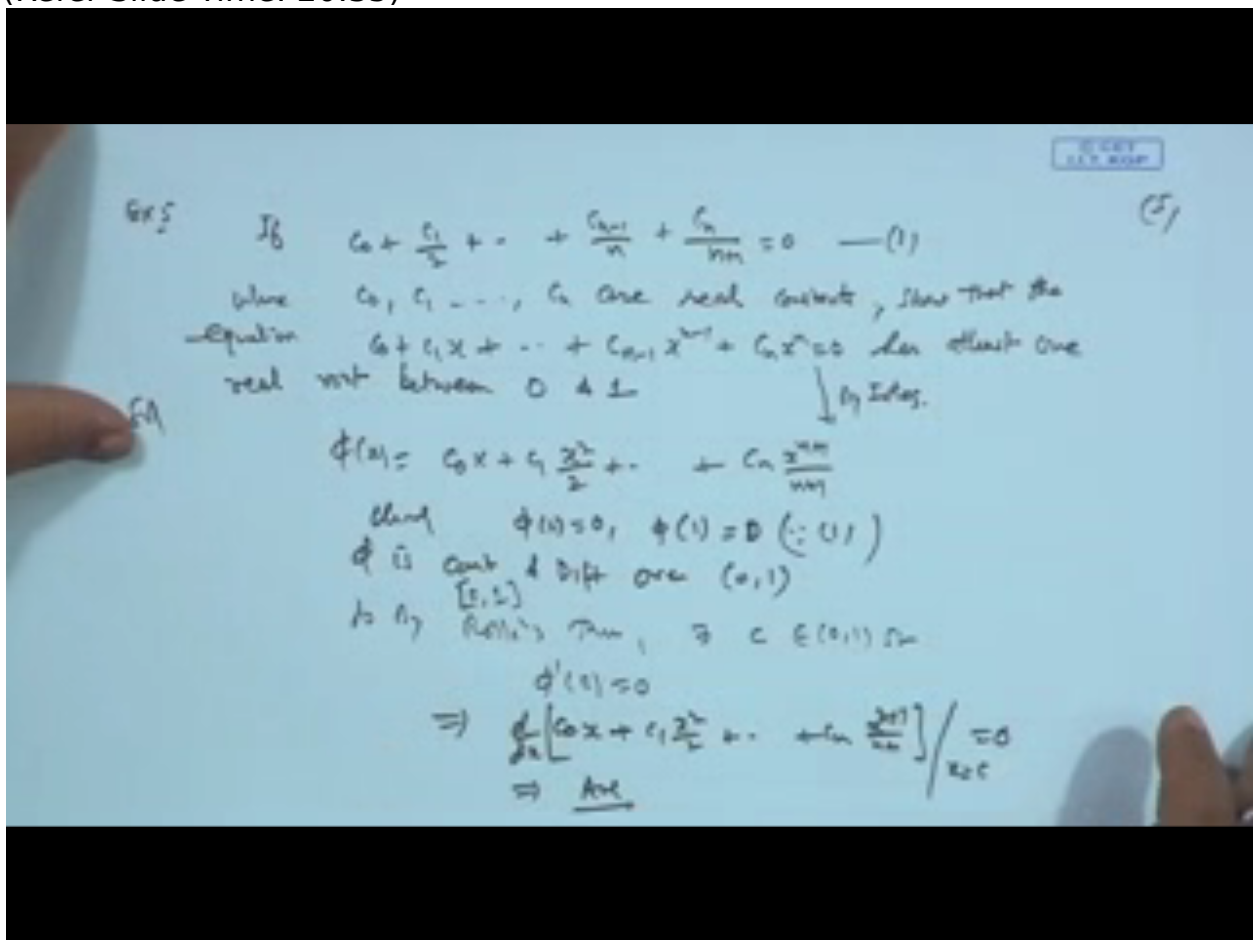 (Refer Slide Time: 20:33)
© CET
I.I.T. KGP
(5)
Ex 5 If C₀ + C₁/2 + ·· + Cₙ₋₁/n + Cₙ/n+1 = 0 — (1)
where C₀, C₁ ---, Cₙ are real constants, show that the
equation C₀ + C₁x + ·· + Cₙ₋₁ xⁿ⁻¹ + Cₙxⁿ = 0 has atleast one
real root between 0 & 1
↓ By Integ.
Sol
φ(x) = C₀x + C₁ x²/2 + ·· + Cₙ xⁿ⁺¹/n+1
φ(0) = 0, φ(1) = 0 (∵ (1))
φ is Cont & Diff over (0,1)
[0,1]
So By Rolle's Thm, ∃ C ∈ (0,1) s.t
φ'(c) = 0
⇒ d/dx [C₀x + C₁ x²/2 + ·· + Cₙ xⁿ⁺¹/n+1] / x=c = 0
⇒